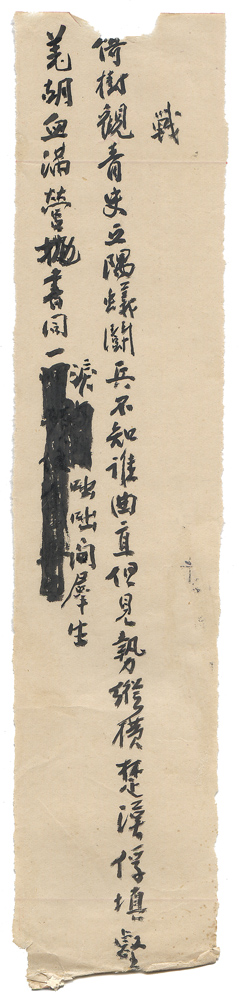 戰
倚樹觀青史隅蟻鬭兵不知誰曲直但見勢縱橫楚漢俘填壑
羌胡血滿營拋書同一
淚咄咄問羣生